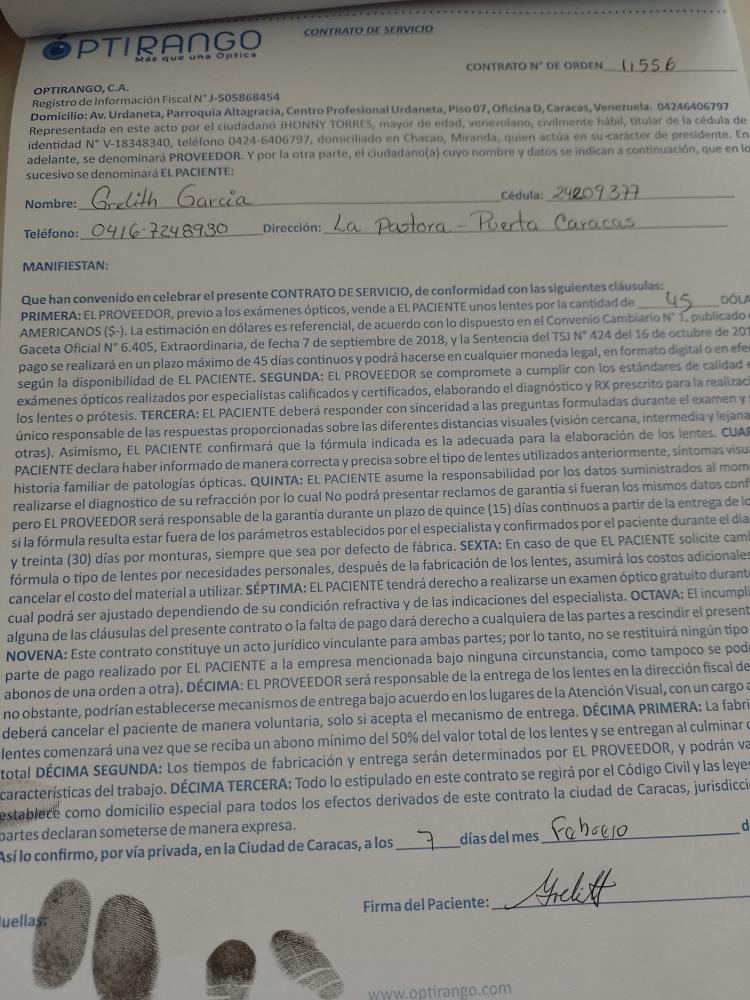 ÓPTIRANGO
Más que una Óptica
CONTRATO DE SERVICIO
CONTRATO N° DE ORDEN 11556
OPTIRANGO, C.A.
Registro de Información Fiscal N° J-505868454
Domicilio: Av. Urdaneta, Parroquia Altagracia, Centro Profesional Urdaneta, Piso 07, Oficina D, Caracas, Venezuela. 04246406797
Representada en este acto por el ciudadano JHONNY TORRES, mayor de edad, venezolano, civilmente hábil, titular de la cédula de
identidad N° V-18348340, teléfono 0424-6406797, domiciliado en Chacao, Miranda, quien actúa en su carácter de presidente. En
adelante, se denominará PROVEEDOR. Y por la otra parte, el ciudadano(a) cuyo nombre y datos se indican a continuación, que en lo
sucesivo se denominará EL PACIENTE:
Nombre: Grelith Garcia Cédula: 24209377
Teléfono: 0416-7248930 Dirección: La Pastora - Puerta Caracas
MANIFIESTAN:
Que han convenido en celebrar el presente CONTRATO DE SERVICIO, de conformidad con las siguientes cláusulas:
PRIMERA: EL PROVEEDOR, previo a los exámenes ópticos, vende a EL PACIENTE unos lentes por la cantidad de 45 DÓLA
AMERICANOS ($-). La estimación en dólares es referencial, de acuerdo con lo dispuesto en el Convenio Cambiario N° 1, publicado
Gaceta Oficial N° 6.405, Extraordinaria, de fecha 7 de septiembre de 2018, y la Sentencia del TSJ N° 424 del 16 de octubre de 201
pago se realizará en un plazo máximo de 45 días continuos y podrá hacerse en cualquier moneda legal, en formato digital o en efe
según la disponibilidad de EL PACIENTE. SEGUNDA: EL PROVEEDOR se compromete a cumplir con los estándares de calidad
exámenes ópticos realizados por especialistas calificados y certificados, elaborando el diagnóstico y RX prescrito para la realizaci
los lentes o prótesis. TERCERA: EL PACIENTE deberá responder con sinceridad a las preguntas formuladas durante el examen y
único responsable de las respuestas proporcionadas sobre las diferentes distancias visuales (visión cercana, intermedia y lejana
otras). Asimismo, EL PACIENTE confirmará que la fórmula indicada es la adecuada para la elaboración de los lentes. CUAR
PACIENTE declara haber informado de manera correcta y precisa sobre el tipo de lentes utilizados anteriormente, síntomas visua
historia familiar de patologías ópticas. QUINTA: EL PACIENTE asume la responsabilidad por los datos suministrados al mom
realizarse el diagnostico de su refracción por lo cual No podrá presentar reclamos de garantía si fueran los mismos datos conf
pero EL PROVEEDOR será responsable de la garantía durante un plazo de quince (15) días continuos a partir de la entrega de lo
si la fórmula resulta estar fuera de los parámetros establecidos por el especialista y confirmados por el paciente durante el dia
y treinta (30) días por monturas, siempre que sea por defecto de fábrica. SEXTA: En caso de que EL PACIENTE solicite cam
fórmula o tipo de lentes por necesidades personales, después de la fabricación de los lentes, asumirá los costos adicionales
cancelar el costo del material a utilizar. SÉPTIMA: EL PACIENTE tendrá derecho a realizarse un examen óptico gratuito durant
cual podrá ser ajustado dependiendo de su condición refractiva y de las indicaciones del especialista. OCTAVA: El incumpli
alguna de las cláusulas del presente contrato o la falta de pago dará derecho a cualquiera de las partes a rescindir el present
NOVENA: Este contrato constituye un acto jurídico vinculante para ambas partes; por lo tanto, no se restituirá ningún tipo
parte de pago realizado por EL PACIENTE a la empresa mencionada bajo ninguna circunstancia, como tampoco se pod
abonos de una orden a otra). DÉCIMA: EL PROVEEDOR será responsable de la entrega de los lentes en la dirección fiscal de
no obstante, podrían establecerse mecanismos de entrega bajo acuerdo en los lugares de la Atención Visual, con un cargo a
deberá cancelar el paciente de manera voluntaria, solo si acepta el mecanismo de entrega. DÉCIMA PRIMERA: La fabri
lentes comenzará una vez que se reciba un abono mínimo del 50% del valor total de los lentes y se entregan al culminar
total DÉCIMA SEGUNDA: Los tiempos de fabricación y entrega serán determinados por EL PROVEEDOR, y podrán va
características del trabajo. DÉCIMA TERCERA: Todo lo estipulado en este contrato se regirá por el Código Civil y las leyes
establece como domicilio especial para todos los efectos derivados de este contrato la ciudad de Caracas, jurisdicci
partes declaran someterse de manera expresa.
Así lo confirmo, por vía privada, en la Ciudad de Caracas, a los 7 días del mes Febrero d
Huellas:
Firma del Paciente: Grelith
www.optirango.com